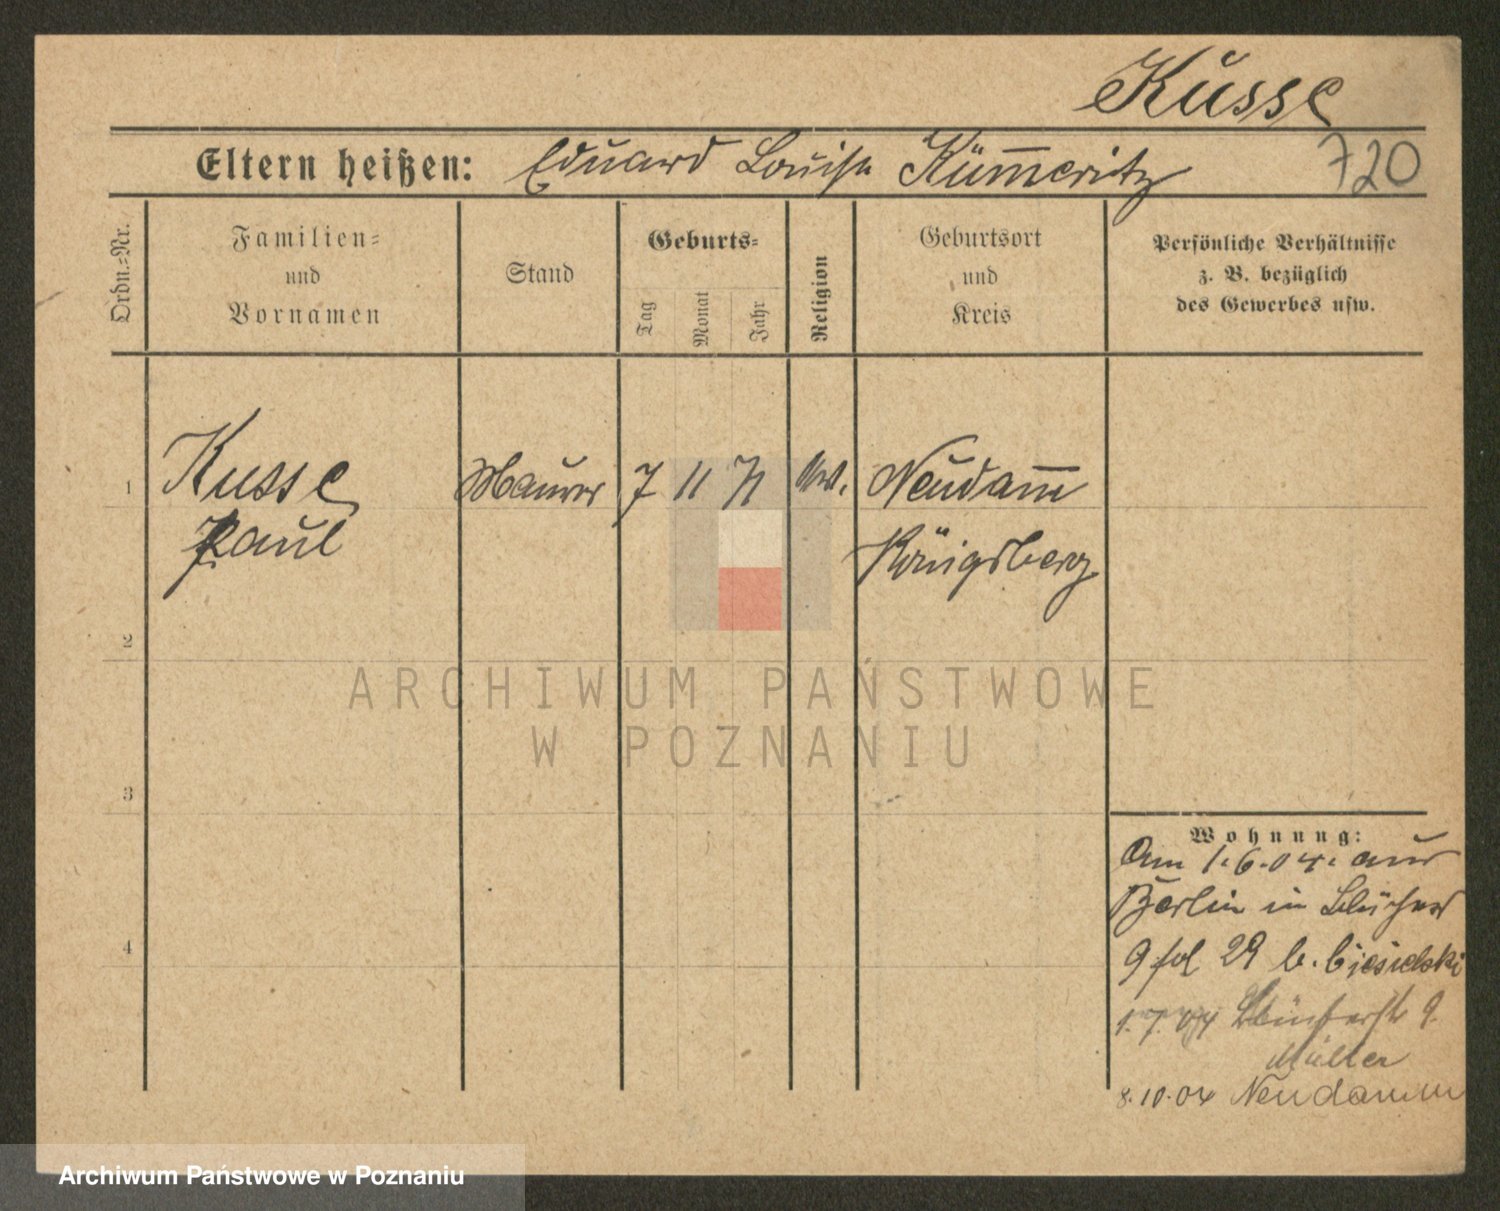 Kusse
Eltern heißen: Eduard Louise Kümmeritz
720
Ordn.-Nr.
Familien-
und
Vornamen
Stand
Geburts-
Tag
Monat
Jahr
Religion
Geburtsort
und
Kreis
Persönliche Verhältnisse
z. B. bezüglich
des Gewerbes usw.
1
Kusse
Paul
Maurer
7 11 71
Neudam̅
Königsberg
2
3
4
ARCHIWUM PAŃSTWOWE
W POZNANIU
Wohnung:
Am 1.6.04. aus
Berlin in
9 29 b.
1.7.04 9.
Müller
8.10.04 Neudamm
Archiwum Państwowe w Poznaniu